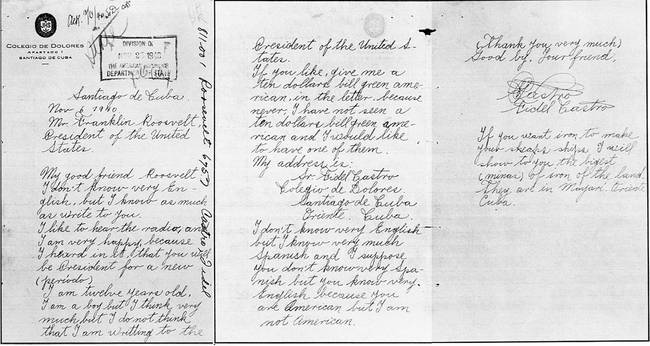 COLEGIO DE DOLORES
APARTADO 1
SANTIAGO DE CUBA
DIVISION OF
THE AMERICAN REPUBLICS
DEPARTMENT OF STATE
811.001 Roosevelt, 6757
Castro, Fidel
Santiago de Cuba.
Nov 6 1940.
Mr. Franklin Roosvelt,
President of the United
States.
My good friend Roosvelt
I don't know very En-
glish, but I know as much
as write to you.
I like to hear the radio, and
I am very happy, because
I heard in it, that you will
be President for a new
(periodo)
I am twelve years old.
I am a boy but I think very
much but I do not think
that I am writting to the
President of the United S-
tates.
If you like, give me a
ten dollars bill green ame-
rican, in the letter, because
never, I have not seen a
ten dollars bill green ame-
rican and I would like
to have one of them.
My address is:
Sr. Fidel Castro
Colegio de Dolores
Santiago de Cuba
Oriente. Cuba.
I don't know very English
but I know very much
Spanish and I suppose
you don't know very Spa-
nish but you know very
English because you
are American but I am
not American.
(Thank you very much)
Good by. Your friend,
F Castro
Fidel Castro
If you want iron to make
your sheaps ships I will
show to you the bigest
(minas) of iron of the land.
They are in Mayari. Oriente
Cuba.